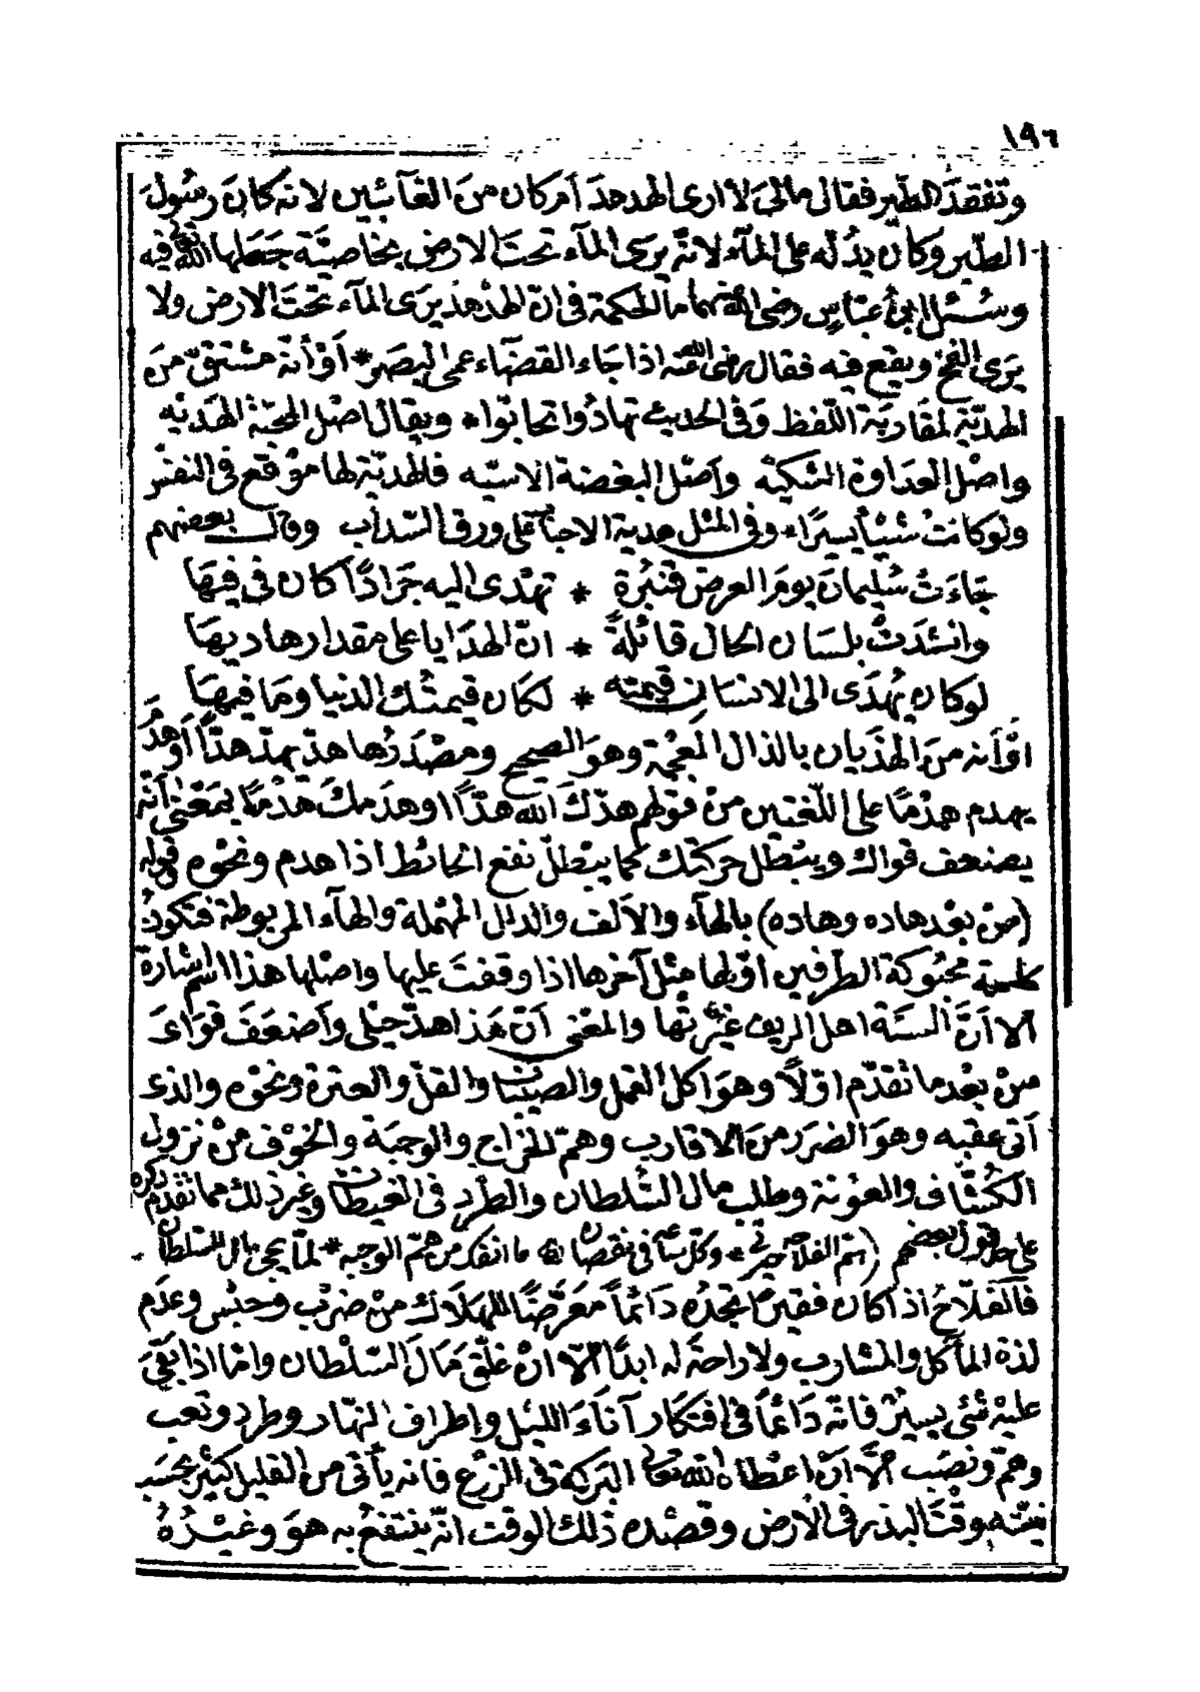 ١٩٦
وتفقد الطير فقال مالي لا ارى الهدهد أم كان من الغآئبين لانه كان رسول
الطير وكان يدله على المآء لانه يرى المآء تحت الارض بخاصية جعلها الله تعالى فيه
وسئل ابن عباس رضى الله عنهما ما الحكمة في ان الهدهد يرى المآء تحت الارض ولا
يرى الفخ ويقع فيه فقال رضى الله عنه اذا جاء القضاء عمى البصر * أو أنه مشتق من
الهدية لمقاربة اللفظ وفي الحديث تهادوا تحابوا * ويقال اصل المحبة الهديه
واصل العداوة الشكيه واصل البغضة الاسيه فالهدية لها موقع في النفس
ولو كانت شيئا يسيرا * وفى المثل هدية الاحباب على ورق السداب وقال بعضهم
جاءت سليمان يوم العرض قنبرة * تهدى اليه جرادا كان في فيها
وانشدت بلسان الحال قائلة * ان الهدايا على مقدار هاديها
لو كان يهدى الى الانسان قيمته * لكان قيمتك الدنيا وما فيها
او أنه من الهذيان بالذال المعجمة وهو الصحيح ومصدرها هد يهد هدا أو هدم
يهدم هدما على اللغتين من قولهم هدك الله هدا وهدمك هدما بمعنى انه
يضعف قواك ويبطل حركتك كما يبطل نفع الحائط اذا هدم ونحوه قوله
(من بعد هاده وهاده) بالهآء والالف والدال المهملة والهآء المربوطة فتكون
كلمة محبوكة الطرفين اولها مثل آخرها اذا وقفت عليها واصلها هذا اسم اشارة
الا أن السنة اهل الريف غيرتها والمعنى أن هذا هد حيلى وأضعف قواى
من بعد ما تقدم اولا وهو اكل القمل والصيبان والقل والعترة ونحوه والذى
أتى عقبه وهو الضرر من الاقارب وهم الخراج والوجبة والخوف من نزول
الكشاف والعونة وطلب مال السلطان والطرد فى الغيطان وغير ذلك مما تقدم ذكره
على حد قول بعضهم ( هم الفلاحه حيرنى * وكل ساعه فى نقصان * ما انفك من هم الوجبه * لما يجى مال السلطان
فالفلاح اذا كان فقيرا تجده دائما معرضا للهلاك من ضرب وحبس وعدم
لذة المأكل والمشارب ولا راحة له ابدا الا ان غلق مال السلطان واما اذا بقى
عليه شئ يسير فانه دائما في افتكار آناء الليل واطراف النهار وطرد وتعب
وهم ونصب الا أن اعطاه الله تعالى البركة فى الزرع فانه يأتى من القليل كثير بحسب
نيته وقت البذر فى الأرض وقصده ذلك الوقت انه ينتفع به هو وغيره